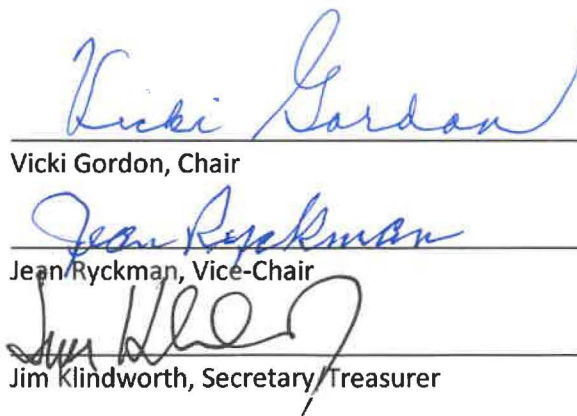 Vicki Gordon
Vicki Gordon, Chair
Jean Ryckman
Jean Ryckman, Vice-Chair
Jim
Jim Klindworth, Secretary/Treasurer